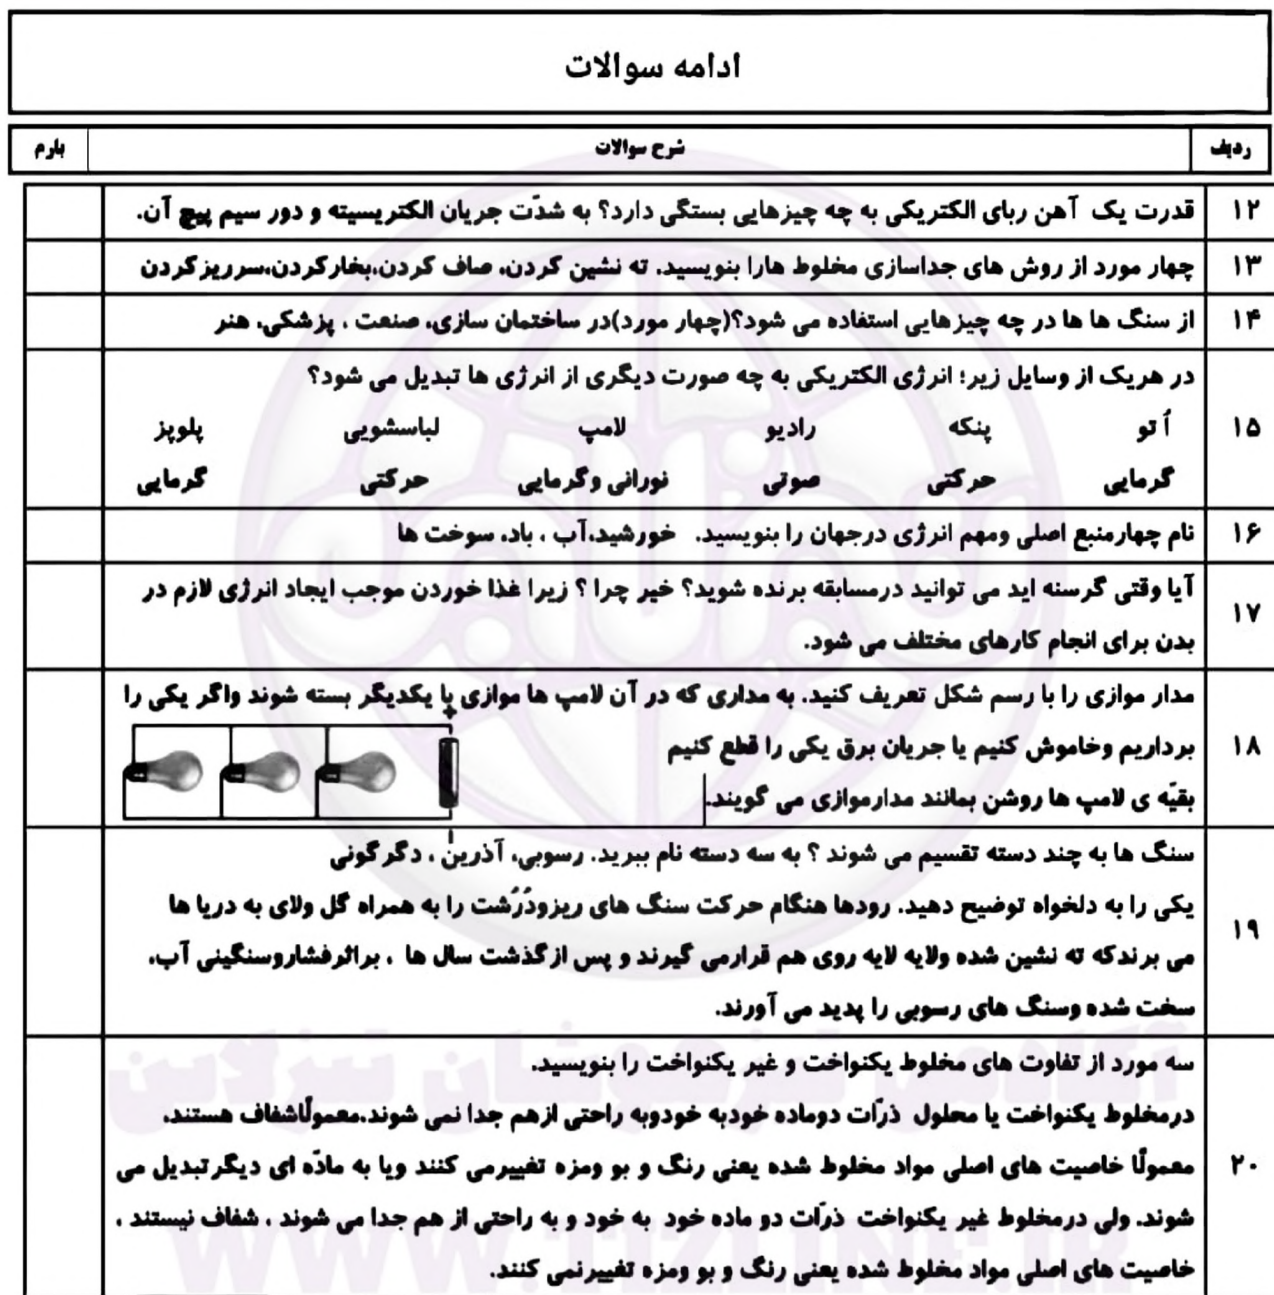 ادامه سوالات
ردیف شرح سوالات بارم
۱۲ قدرت یک آهن ربای الکتریکی به چه چیزهایی بستگی دارد؟ به شدّت جریان الکتریسیته و دور سیم پیچ آن.
۱۳ چهار مورد از روش های جداسازی مخلوط هارا بنویسید. ته نشین کردن، صاف کردن،بخارکردن،سرریزکردن
۱۴ از سنگ ها ها در چه چیزهایی استفاده می شود؟(چهار مورد)در ساختمان سازی، صنعت ، پزشکی، هنر
در هریک از وسایل زیر؛ انرژی الکتریکی به چه صورت دیگری از انرژی ها تبدیل می شود؟
۱۵ اُتو پنکه رادیو لامپ لباسشویی پلوپز
گرمایی حرکتی صوتی نورانی وگرمایی حرکتی گرمایی
۱۶ نام چهارمنبع اصلی ومهم انرژی درجهان را بنویسید. خورشید،آب ، باد، سوخت ها
۱۷ آیا وقتی گرسنه اید می توانید درمسابقه برنده شوید؟ خیر چرا ؟ زیرا غذا خوردن موجب ایجاد انرژی لازم در
بدن برای انجام کارهای مختلف می شود.
مدار موازی را با رسم شکل تعریف کنید. به مداری که در آن لامپ ها موازی با یکدیگر بسته شوند واگر یکی را
+
۱۸ برداریم وخاموش کنیم یا جریان برق یکی را قطع کنیم
بقیّه ی لامپ ها روشن بمانند مدارموازی می گویند.
سنگ ها به چند دسته تقسیم می شوند ؟ به سه دسته نام ببرید. رسوبی، آذرین ، دگرگونی
یکی را به دلخواه توضیح دهید. رودها هنگام حرکت سنگ های ریزودُرُشت را به همراه گل ولای به دریا ها
۱۹ می برندکه ته نشین شده ولایه لایه روی هم قرارمی گیرند و پس ازگذشت سال ها ، براثرفشاروسنگینی آب،
سخت شده وسنگ های رسوبی را پدید می آورند.
سه مورد از تفاوت های مخلوط یکنواخت و غیر یکنواخت را بنویسید.
درمخلوط یکنواخت یا محلول ذرّات دوماده خودبه خودوبه راحتی ازهم جدا نمی شوند.معمولًاشفاف هستند،
۲۰ معمولًا خاصیت های اصلی مواد مخلوط شده یعنی رنگ و بو ومزه تغییرمی کنند ویا به مادّه ای دیگرتبدیل می
شوند. ولی درمخلوط غیر یکنواخت ذرّات دو ماده خود به خود و به راحتی از هم جدا می شوند ، شفاف نیستند ،
خاصیت های اصلی مواد مخلوط شده یعنی رنگ و بو ومزه تغییرنمی کنند.
آکادمی تیزهوشان تیزلاین
WWW.TIZLINE.IR